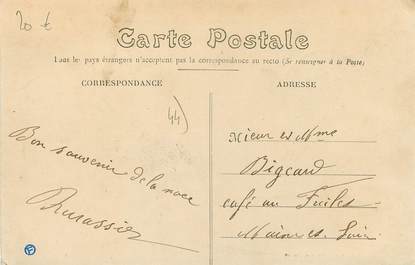 20 €
Carte Postale
Tous les pays étrangers n'acceptent pas la correspondance au recto (Se renseigner à la Poste)
CORRESPONDANCE
ADRESSE
44)
Bon souvenir
de la noce
Mieur et Mme
Bigeard
café au
Maine et Loire